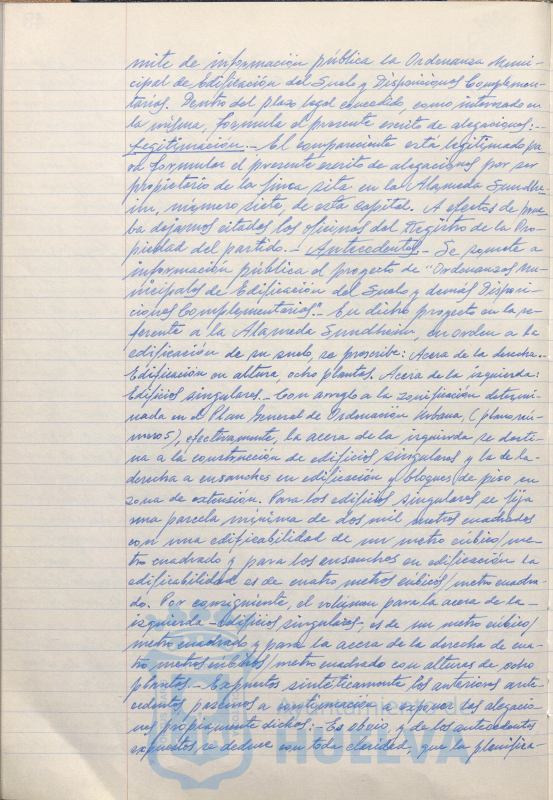 mite de información pública la Ordenanza Muni-
cipal de Edificación del Suelo y Disposiciones Complemen-
tarias. Dentro del plazo legal concedido, como interesado en
la misma, formula el presente escrito de alegaciones:-
Legitimación.- El compareciente está legitimado pa-
ra formular el presente escrito de alegaciones por ser
propietario de la finca sita en la Alameda Sundhe-
im, número siete de esta capital. A efectos de prue-
ba dejamos citados los oficinas del Registro de la Pro-
piedad del partido.- Antecedentes.- Se somete a
información pública el proyecto de "Ordenanzas Mu-
nicipales de Edificación del Suelo y demás Disposi-
ciones Complementarias".- En dicho proyecto en lo re-
ferente a la Alameda Sundheim, en orden a la
edificación de su suelo, se prescribe: Acera de la derecha.-
Edificación en altura, ocho plantas. Acera de la izquierda:
Edificios singulares.- Con arreglo a la zonificación determi-
nada en el Plan General de Ordenación Urbana, (plano nú-
mero 5), efectivamente, la acera de la izquierda se desti-
na a la construcción de edificios singulares y la de la
derecha a ensanches en edificación y bloques de piso en
zona de extensión. Para los edificios singulares se fija
una parcela mínima de dos mil metros cuadrados
con una edificabilidad de un metro cúbico/me-
tro cuadrado y para los ensanches en edificación la
edificabilidad es de cuatro metros cúbicos/metro cuadra-
do. Por consiguiente, el volumen para la acera de la
izquierda - Edificios singulares, es de un metro cúbico/
metro cuadrado y para la acera de la derecha de cua-
tro metros cúbicos/metro cuadrado con alturas de ocho
plantas.- Expuestos sintéticamente los anteriores ante-
cedentes pasemos a continuación a exponer las alegacio-
nes propiamente dichas:- Es obvio y de los antecedentes
expuestos se deduce con toda claridad, que la planifica-
HUELVA